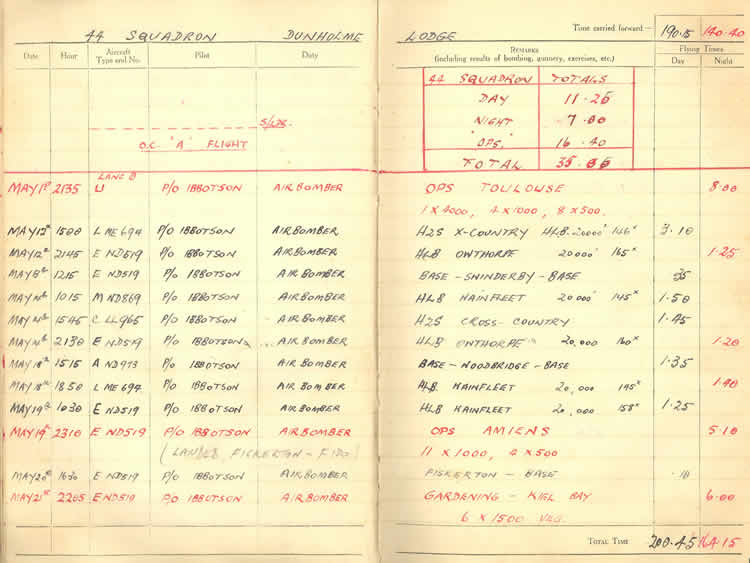 44 SQUADRON DUNHOLME LODGE
Time carried forward — 190.15 140.40
Date Hour Aircraft Type and No. Pilot Duty REMARKS (including results of bombing, gunnery, exercises, etc.) Flying Times Day Night
44 SQUADRON TOTALS
DAY 11.25
NIGHT 7.00
"OPS." 16.40
TOTAL
S/LDR.
O.C. "A" FLIGHT
MAY 1ST 2135 LANC U P/O IBBOTSON AIRBOMBER OPS TOULOUSE 8.00
1 X 4000, 4 X 1000, 8 X 500.
MAY 12th 1500 L ME694 P/O IBBOTSON AIRBOMBER H2S X-COUNTRY HLB. 20000' 146x 3.10
MAY 12th 2145 E ND519 P/O IBBOTSON AIRBOMBER HLB OWTHORPE 20000' 165x 1.25
MAY 1215 E ND519 P/O IBBOTSON AIRBOMBER BASE - SWINDERBY - BASE 35
MAY 1015 M ND869 P/O IBBOTSON AIRBOMBER HLB WAINFLEET 20000' 145x 1.50
MAY 1545 C LL965 P/O IBBOTSON AIRBOMBER H2S CROSS-COUNTRY 1.45
MAY 2130 E ND519 P/O IBBOTSON AIRBOMBER HLB OWTHORPE 20,000 160x 1.20
MAY 18th 1515 A ND973 P/O IBBOTSON AIRBOMBER BASE - WOODBRIDGE - BASE 1.35
MAY 18th 1850 L ME694 P/O IBBOTSON AIRBOMBER HLB WAINFLEET 20,000 195x 1.40
MAY 19th 1030 E ND519 P/O IBBOTSON AIRBOMBER HLB WAINFLEET 20,000 158x 1.25
MAY 19th 2310 E ND519 P/O IBBOTSON AIRBOMBER OPS AMIENS 5.10
(LANDED FISKERTON - FIDO) 11 X 1000, 4 X 500
MAY 20th 1630 E ND519 P/O IBBOTSON AIRBOMBER FISKERTON - BASE .10
MAY 21st 2205 E ND519 P/O IBBOTSON AIRBOMBER GARDENING - KIEL BAY 6.00
6 X 1500 VEG.
TOTAL TIME 200.45 164.15